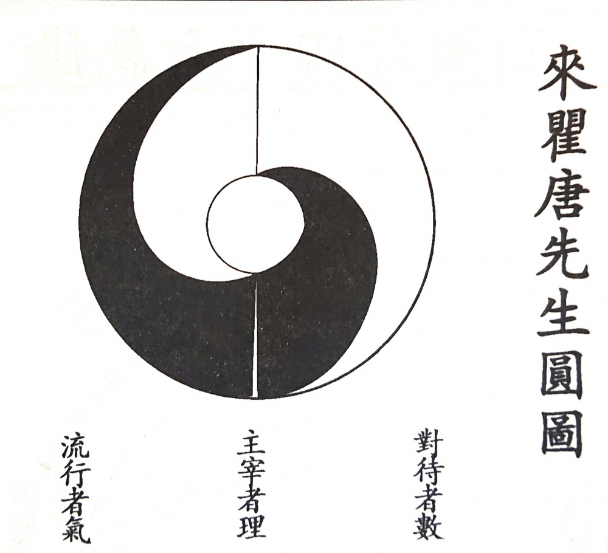 來瞿唐先生圓圖
對待者數
主宰者理
流行者氣